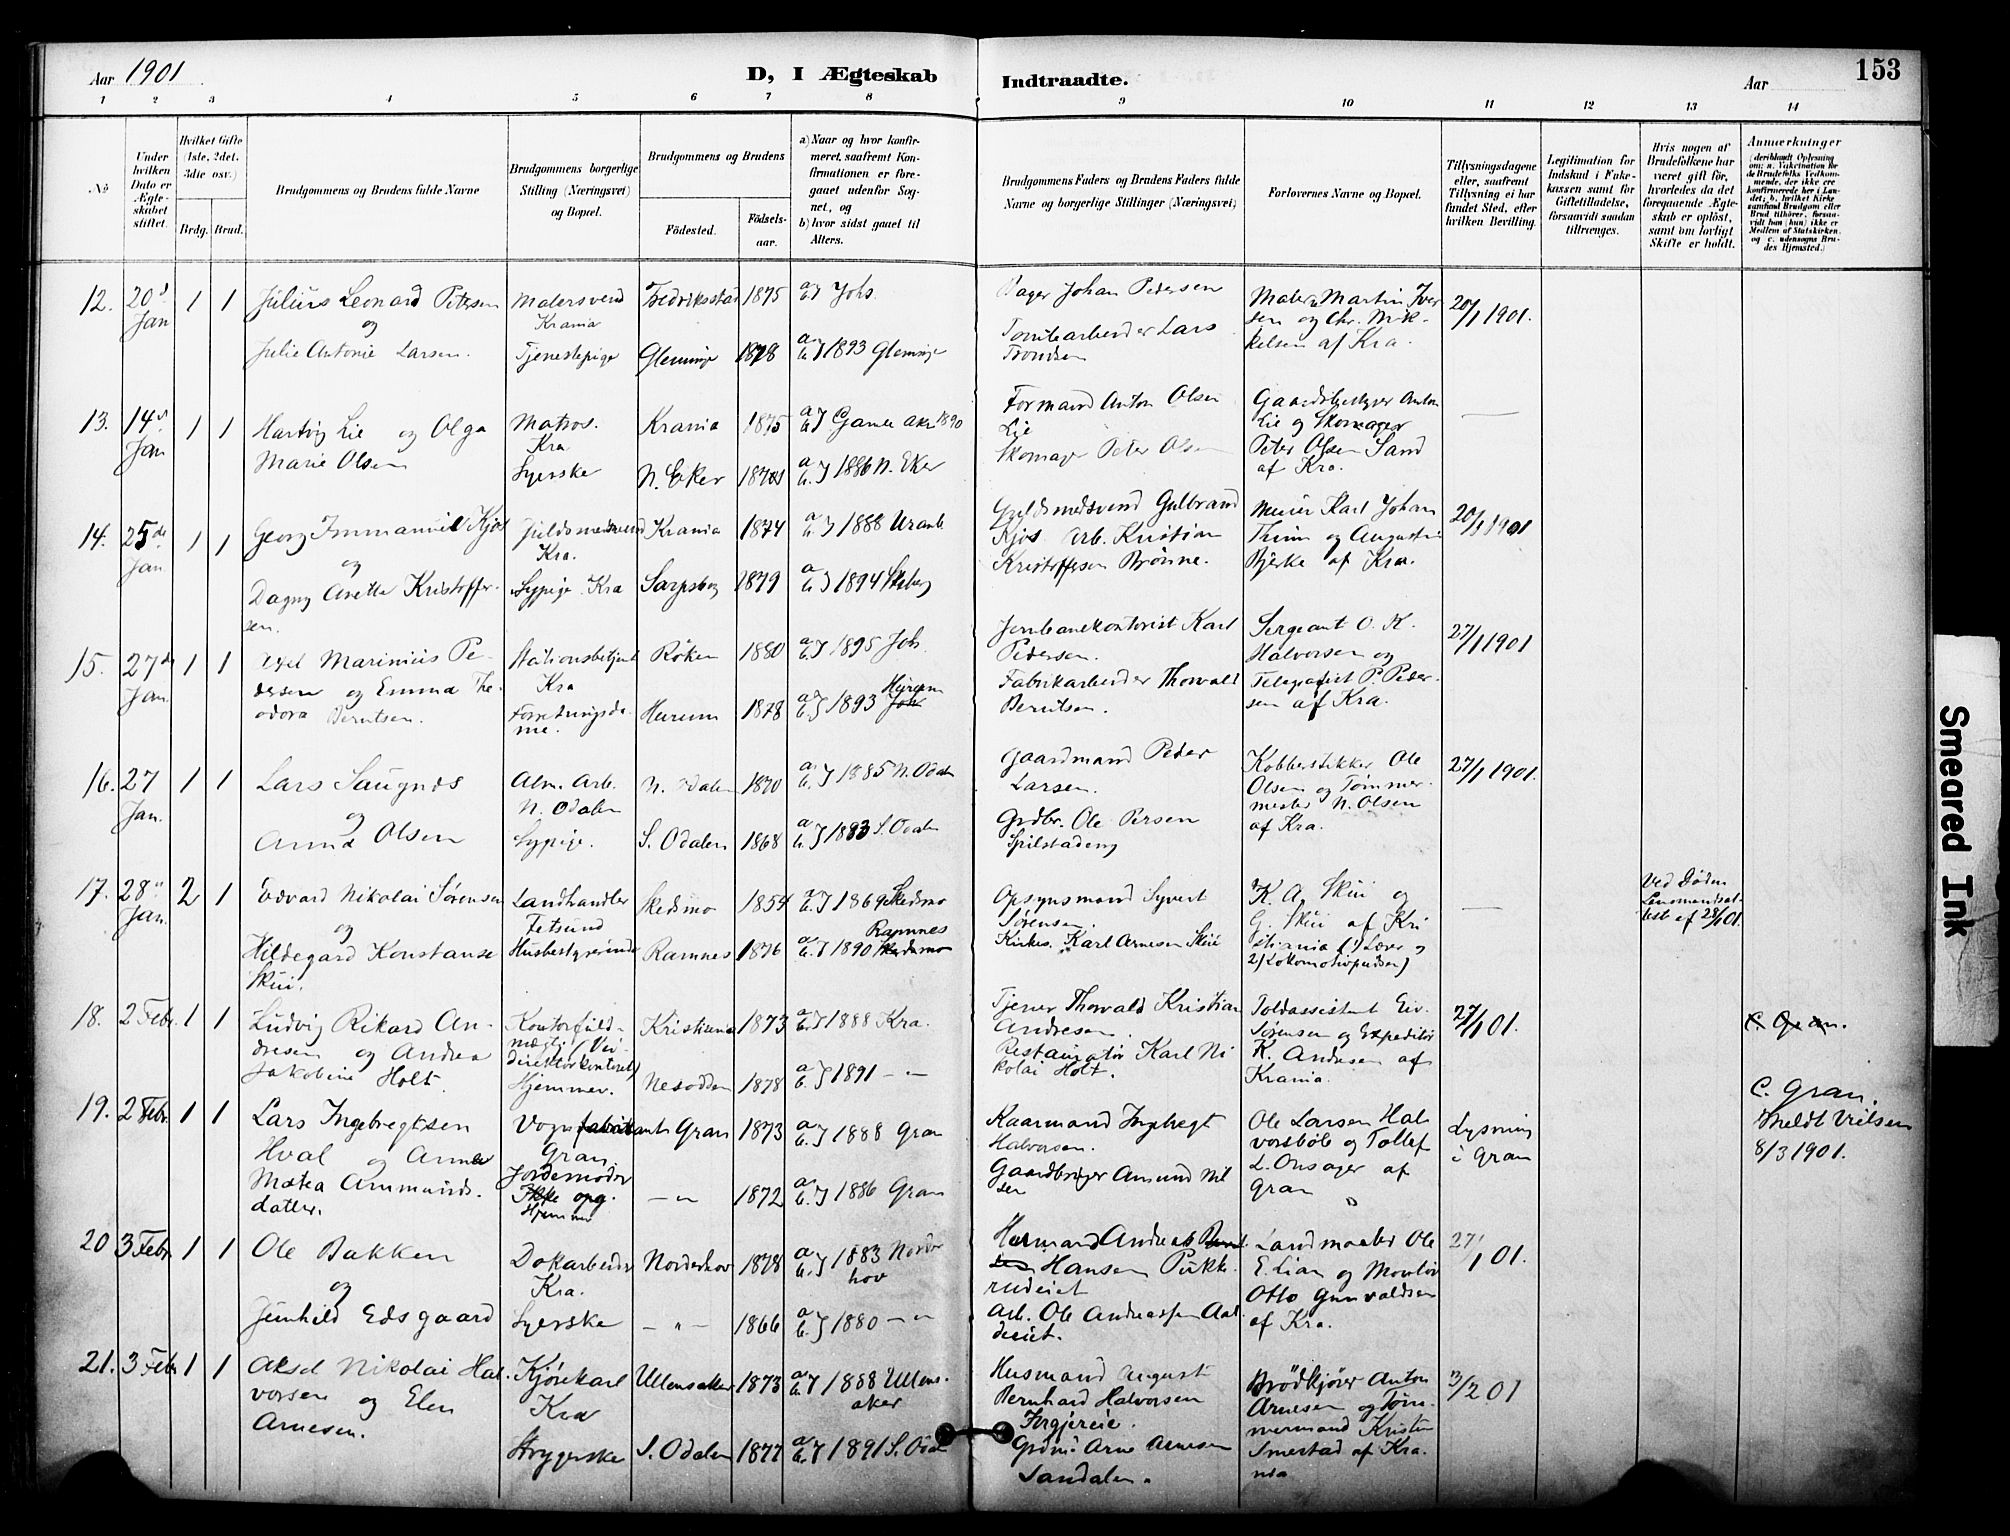 Aar 1901
D, I Ægteskab
Indtraadte.
Aar
153
1 2 3 4 5 6 7 8 9 10 11 12 13 14
No
Under hvilken Dato er Ægteskabet stiftet.
Hvilket Gifte (1ste, 2det, 3die osv.)
Brdg. Brud.
Brudgommens og Brudens fulde Navne
Brudgommens borgerlige Stilling (Næringsvei) og Bopæl.
Brudgommens og Brudens
Fødested.
Fødselsaar.
a) Naar og hvor konfirmeret, saafremt Konfirmationen er foregaaet udenfor Sognet, og
b) hvor sidst gaaet til Alters.
Brudgommens Faders og Brudens Faders fulde Navne og borgerlige Stillinger (Næringsvei)
Forlovernes Navne og Bopæl.
Tillysningsdagene eller, saafremt Tillysning ei har fundet Sted, efter hvilken Bevilling.
Legitimation for Indskud i Enkekassen samt for Giftetilladelse, forsaavidt saadan tiltrænges.
Hvis nogen af Brudefolkene har været gift før, hvorledes da det foregaaende Ægteskab er opløst, samt om lovligt Skifte er holdt.
Anmærkninger
(deriblandt Oplysning om: a. Vakcination for de Brudefolks Vedkommende, der ikke ere konfirmerede her i Landet; b. hvilket Kirkesamfund Brudgom eller Brud tilhører, forsaavidt han (hun) ikke er Medlem af Statskirken, og c. udensogns Brudes Hjemsted.)
12. 20 Jan 1 1 Julius Leonard Petersen Malersvend Krania Fredriksstad 1875 Johs. Bager Johan Pedersen Maler Martin Iversen og Chr. Mikkelsen af Kra. 20/1 1901.
og
Julie Antonie Larsen. Tjenestepige Glemminge 1878 1893 Glemminge Tomtearbeider Lars Trondsen
13. 14 Jan 1 1 Hartvig Lie og Olga Matros. Kra Krania 1875 Gamle Aker 1890 Formand Anton Olsen Lie Gaardsbestyrer Anton Lie og Skomager
Marie Olsen Syerske N. Eker 1886 N. Eker Skomager Peter Olsen Peter Olsen Sand af Kra.
14. 25de Jan. 1 1 Georg Immanuel Kjos Guldsmedsvend Kra. Krania 1874 1888 Uranb Guldsmedsvend Gulbrand Kjos Murer Karl Johan Thim og 20/1 1901
og
Dagny Anette Kristoffersen. Sypige Kra Sarpsborg 1879 1894 Skeberg Arb. Kristian Kristoffersen Brønne. Bjerke af Kra.
15. 27 Jan. 1 1 Axel Marinius Pedersen og Emma Theodora Berntsen. Stationsbetjent Kra Røken 1880 1895 Joh. Jernbanekontorist Karl Pedersen. Sergeant O. K. Halvorsen og 27/1 1901
Forretningsdame. Hurum 1878 1893 Hurum Fabrikarbeider Thorvald Berntsen. Telegrafist P. Pedersen af Kra.
16. 27 Jan. 1 1 Lars Saugnæs Alm. Arb. N. Odalen N. Odalen 1870 1885 N. Odalen Gaardmand Peder Larsen. Kobberstikker Ole Olsen og Tømmermester N. Olsen af Kra. 27/1 1901.
og
Anna Olsen Sypige. S. Odalen 1868 1883 S. Odalen Grdbr. Ole Persen Spilstadeng
17. 28 Jan. 2 1 Edvard Nikolai Sørensen Landhandler Fetsund Skedsmo 1854 1869 Skedsmo Opsynsmand Syvert Sørensen K. A. Skui og G. Skui af Kristiania (1) Lærer, 2) Lokomotivpudser) Ved Døden Lensmandsattest af 28/1 01.
og
Hildegard Konstanse Skui. Husbestyrerinde Ramnes 1876 1890 Ramnes Kirkes. Karl Arnesen Skui
18. 2 Febr. 1 1 Ludvig Rikard Andresen og Andrea Jakobine Holt. Kontorfuldmægtig (Veidirektørkontoret) Kristiania 1873 1888 Kra. Tjener Thorvald Kristian Andresen. Toldassistent Eiv. Sørensen og Expeditør K. Andresen af Krania. 27/1 01. C. Gran.
Hjemmev. Nesodden 1878 1891 -"- Restauratør Karl Nikolai Holt.
19. 2 Febr. 1 1 Lars Ingebregtsen Hval og Anne Mathea Ammundsdatter. Vognfabrikant Gran. Gran 1873 1888 Gran Kaarmand Ingebregt Halvorsen. Ole Larsen Halvorsbøle og Tollef L. Onsager af Gran Lysning i Gran C. Gran. Meldt Vielsen 8/3 1901.
Jordemoder Ikke opg. Hjemme -"- 1872 1886 Gran Gaardbruger Amund Nilsen
20 3 Febr. 1 1 Ole Bakken Dokarbeider Kra. Norderhov 1878 1883 Norderhov Husmand Andreas Hansen Pukkerudeiet Landmaaler Ole E. Lian og Montør Otto Gunvaldsen af Kra. 27/1 01.
og
Gunhild Edsgaard Syerske -"- 1866 1880 -"- Arb. Ole Andreassen
21. 3 Febr 1 1 Aksel Nikolai Halvorsen og Elen Arnesen. Kjørekarl Kra Ullensaker 1873 1888 Ullensaker Husmand August Bernhard Halvorsen Brødkjører Anton Arnesen og Tømmermand Kristen Smestad af Krania 3/2 01
Strygerske S. Odalen 1877 1891 S. Odal Grdm. Arne Arnesen Sandalen.
Smeared Ink